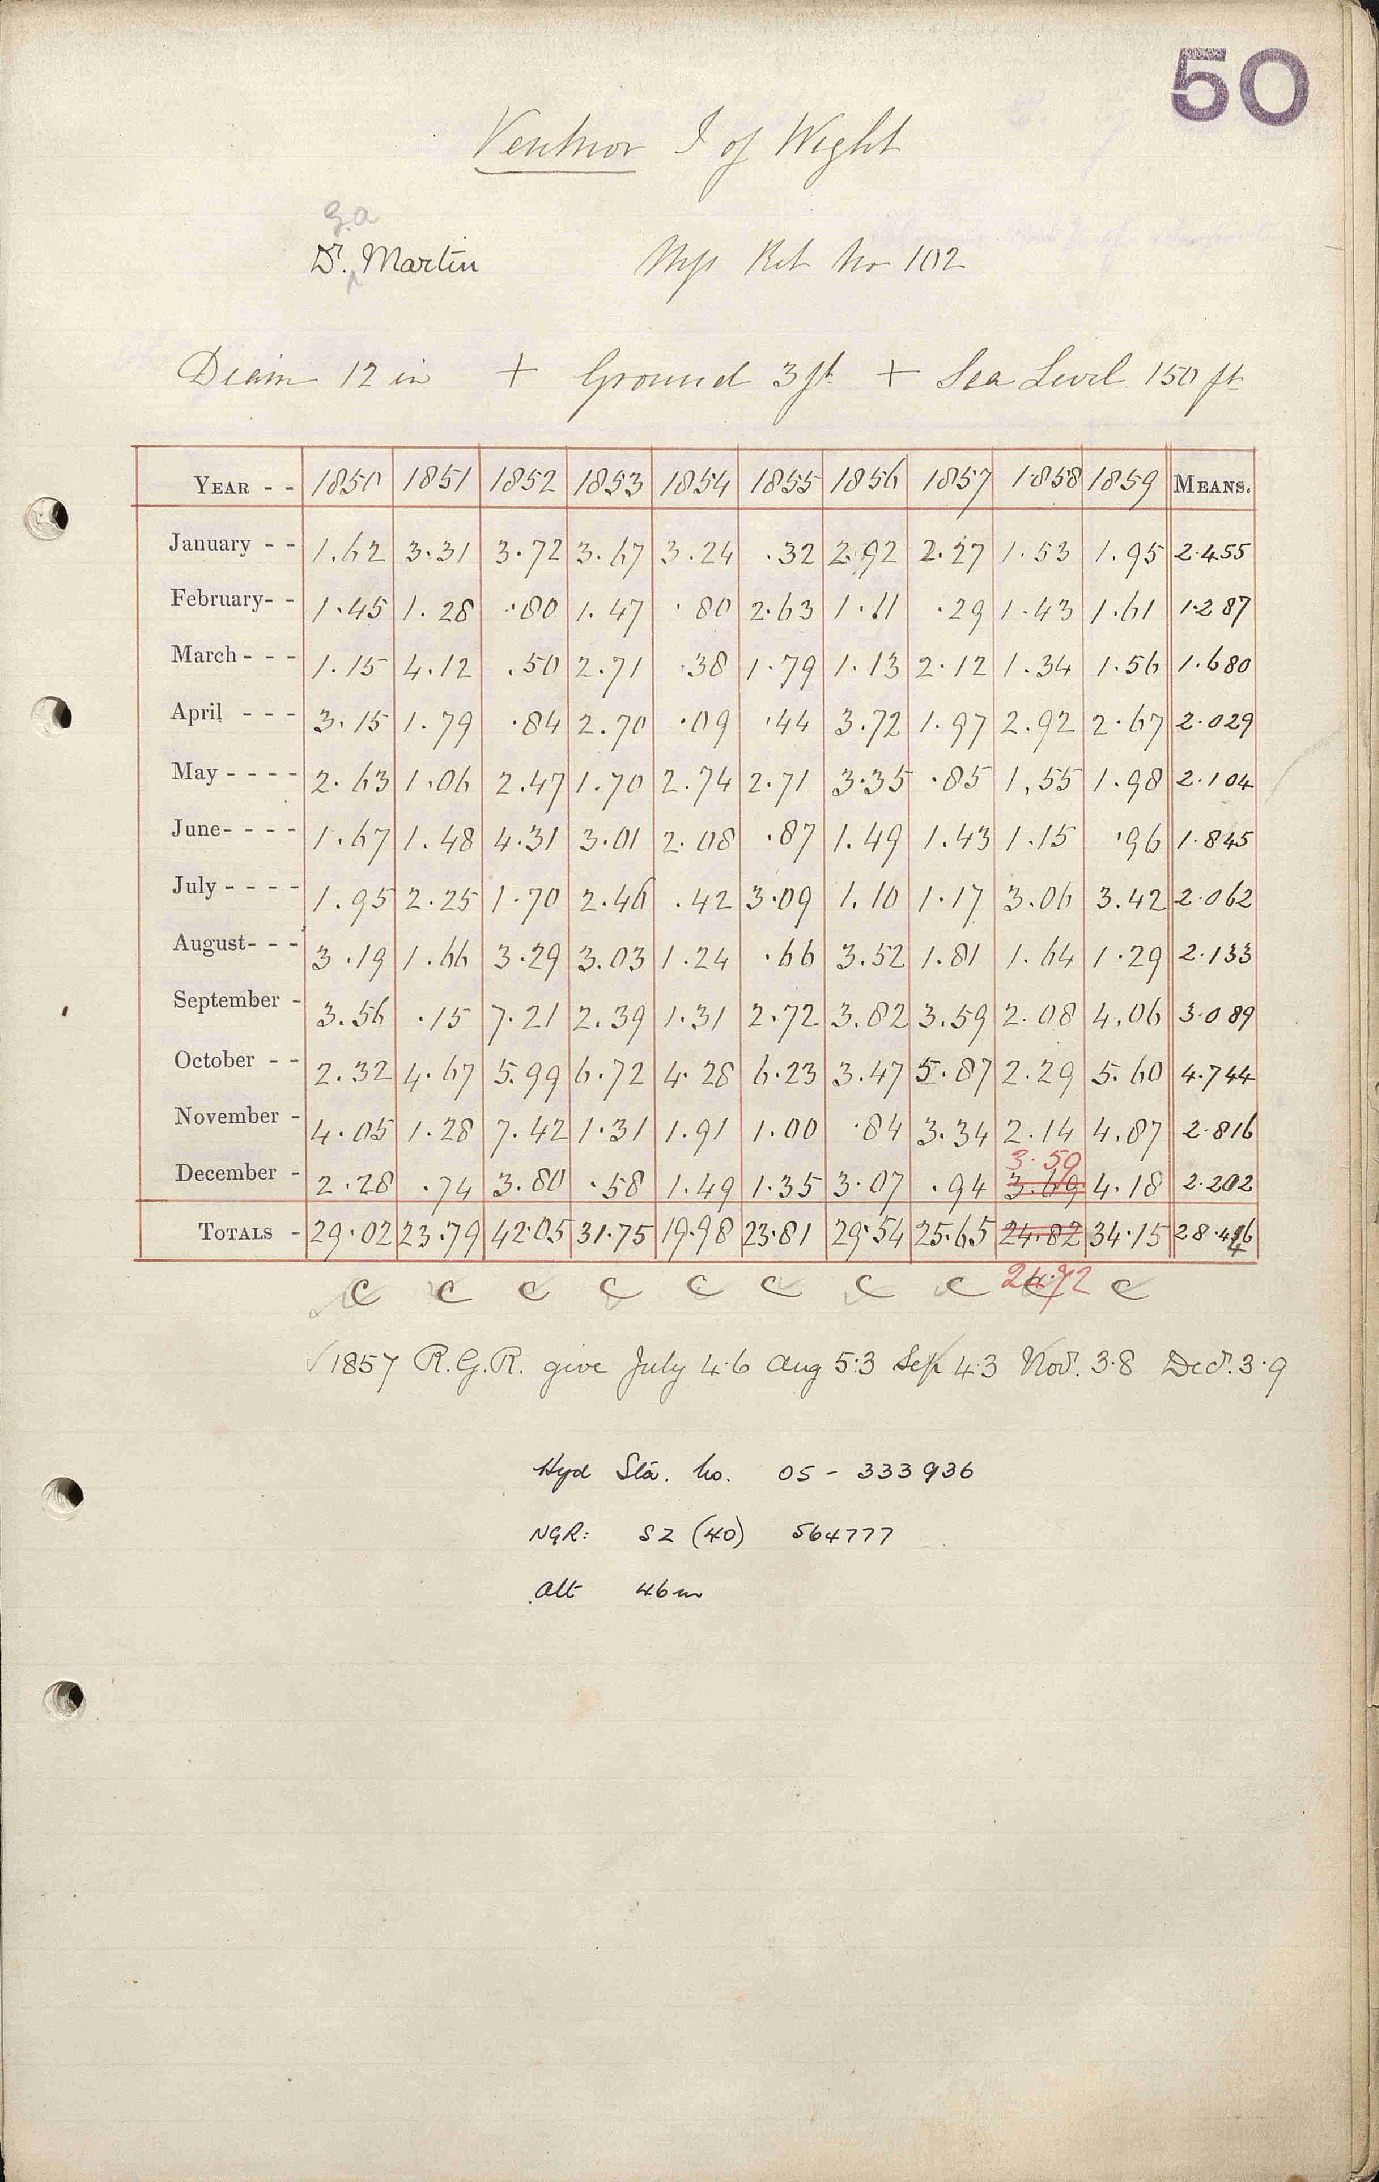 50
Ventnor I of Wight
G.a
Dr. Martin Ret No 102
Diam 12 in + Ground 3 ft + Sea Level 150 ft
YEAR - - 1850 1851 1852 1853 1854 1855 1856 1857 1858 1859 MEANS.
January - - 1.62 3.31 3.72 3.67 3.24 .32 2.92 2.27 1.53 1.95 2.455
February - - 1.45 1.28 .80 1.47 .80 2.63 1.11 .29 1.43 1.61 1.287
March - - - 1.15 4.12 .50 2.71 .38 1.79 1.13 2.12 1.34 1.56 1.680
April - - - 3.15 1.79 .84 2.70 .09 .44 3.72 1.97 2.92 2.67 2.029
May - - - - 2.63 1.06 2.47 1.70 2.74 2.71 3.35 .85 1.55 1.98 2.104
June - - - - 1.67 1.48 4.31 3.01 2.08 .87 1.49 1.43 1.15 .96 1.845
July - - - - 1.95 2.25 1.70 2.46 .42 3.09 1.10 1.17 3.06 3.42 2.062
August - - - 3.19 1.66 3.29 3.03 1.24 .66 3.52 1.81 1.64 1.29 2.133
September - 3.56 .15 7.21 2.39 1.31 2.72 3.82 3.59 2.08 4.06 3.089
October - - 2.32 4.67 5.99 6.72 4.28 6.23 3.47 5.87 2.29 5.60 4.744
November - 4.05 1.28 7.42 1.31 1.91 1.00 .84 3.34 2.14 4.87 2.816
3.59
December - 2.28 .74 3.80 .58 1.49 1.35 3.07 .94 3.69 4.18 2.202
TOTALS - 29.02 23.79 42.05 31.75 19.98 23.81 29.54 25.65 24.82 34.15 28.446
24.72
C C C C C C C C C C
✓ 1857 R.G.R. give July 4.6 Aug 5.3 Sep 4.3 Nov. 3.8 Dec. 3.9
Hyd Sta. No. 05 - 333936
NGR: SZ (40) 564777
Alt 46m